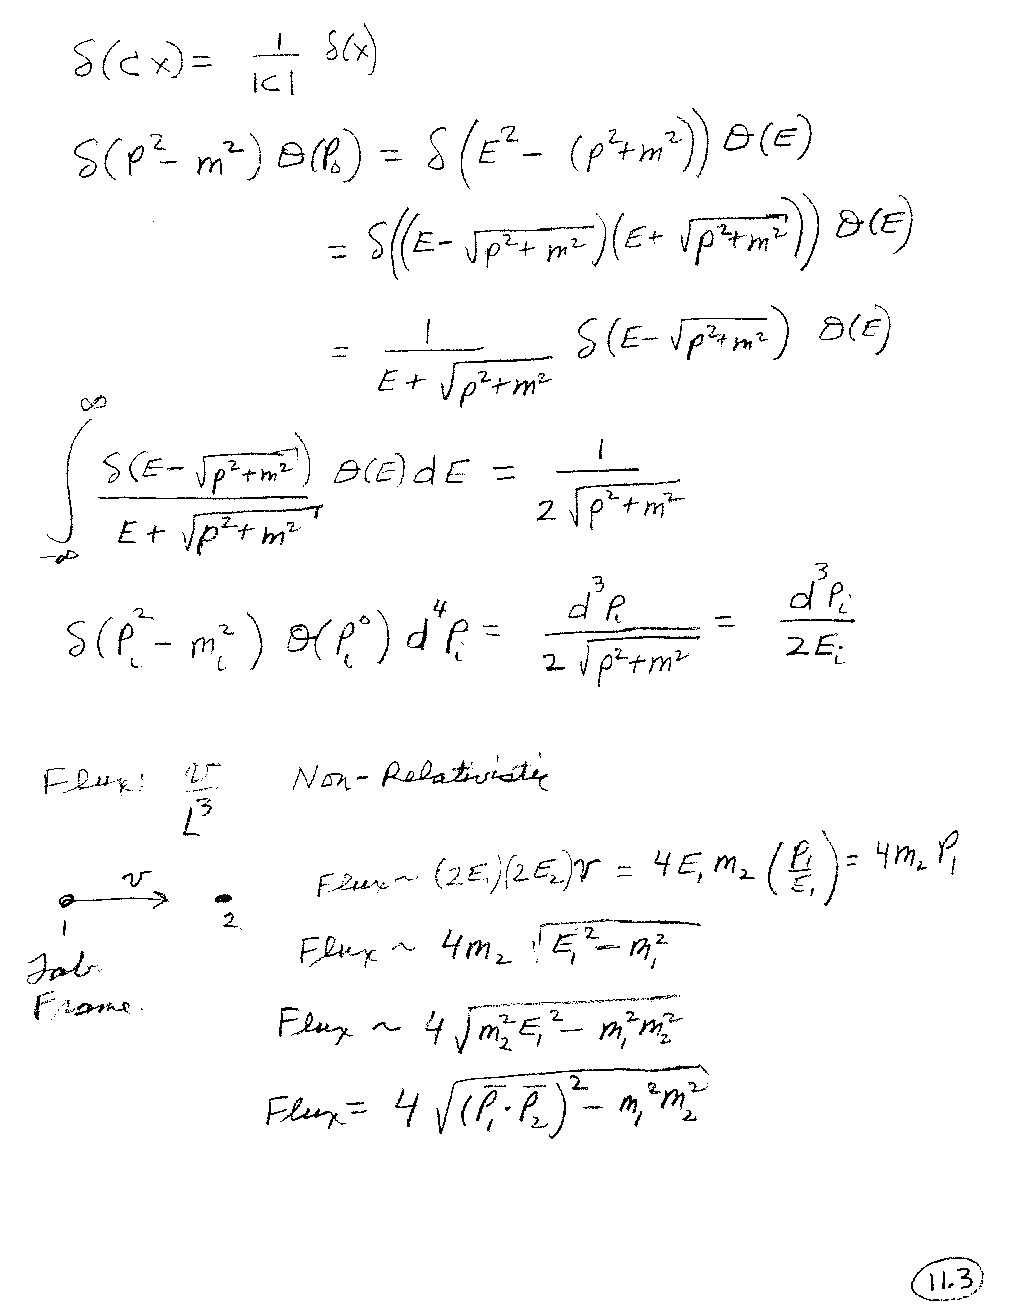 δ(cx) = 1/|c| δ(x)
δ(p² - m²) θ(p₀) = δ(E² - (p² + m²)) θ(E)
= δ((E - √(p² + m²))(E + √(p² + m²))) θ(E)
= 1/(E + √(p² + m²)) δ(E - √(p² + m²)) θ(E)
∫_{-∞}^{∞} δ(E - √(p² + m²))/(E + √(p² + m²)) θ(E) dE = 1/(2√(p² + m²))
δ(p_i² - m_i²) θ(p_i⁰) d⁴p_i = d³p_i/(2√(p² + m²)) = d³p_i/(2E_i)
Flux: v/L³ Non-Relativistic
Flux ~ (2E₁)(2E₂)v = 4E₁m₂(p₁/E₁) = 4m₂p₁
v
1 2
Lab
Frame.
Flux ~ 4m₂√(E₁² - m₁²)
Flux ~ 4√(m₂²E₁² - m₁²m₂²)
Flux = 4√((p̄₁·p̄₂)² - m₁²m₂²)
11.3